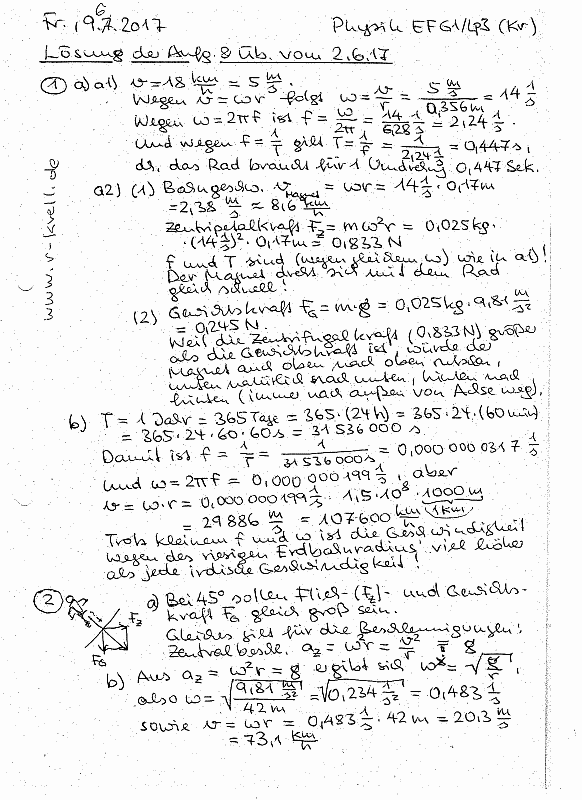 Fr., 9.6.2017 Physik EFG1/Lp3 (Kr)
Lösung der Aufg. & Üb. vom 2.6.17
① a) a1) v = 18 km/h = 5 m/s.
Wegen v = ωr folgt ω = v/r = (5 m/s)/(0,356m) = 14 1/s
Wegen ω = 2πf ist f = ω/2π = 14/6,28 1/s = 2,24 1/s.
Und wegen f = 1/T gilt T = 1/f = 1/(2,24 1/s) = 0,447s,
d.h. das Rad braucht für 1 Umdrehung 0,447 Sek.
a2) (1) Bahngeschw. v Magnet = ωr = 14 1/s · 0,17m
= 2,38 m/s ≈ 8,6 km/h
Zentripetalkraft Fz = mω²r = 0,025kg ·
· (14 1/s)² · 0,17m = 0,833 N
f und T sind (wegen gleichem ω) wie in a1)!
Der Magnet dreht sich mit dem Rad
gleich schnell!
(2) Gewichtskraft FG = m·g = 0,025kg · 9,81 m/s²
= 0,245 N.
Weil die Zentrifugalkraft (0,833N) größer
als die Gewichtskraft ist, würde der
Magnet auch oben nach oben rutschen,
unten natürlich nach unten, hinten nach
hinten (immer nach außen von Achse weg).
b) T = 1 Jahr = 365 Tage = 365·(24h) = 365·24·(60min)
= 365·24·60·60s = 31536000 s
Damit ist f = 1/T = 1/31536000s = 0,0000000317 1/s
und ω = 2πf = 0,000000199 1/s, aber
v = ω·r = 0,000000199 1/s · 1,5·10⁸ · 1000m
(1km)
= 29886 m/s = 107600 km/h
Trotz kleinem f und ω ist die Geschwindigkeit
wegen des riesigen Erdbahnradius viel höher
als jede irdische Geschwindigkeit!
② a) Bei 45° sollen Flieh- (Fz)- und Gewichts-
kraft FG gleich groß sein.
Gleiches gilt für die Beschleunigungen:
Zentralbeschl. az = ω²r = v²/r = g
Fz
FG
b) Aus az = ω²r = g ergibt sich ω = √(g/r),
also ω = √(9,81 m/s² / 42m) = √(0,234 1/s²) = 0,483 1/s
sowie v = ωr = 0,483 1/s · 42m = 20,3 m/s
= 73,1 km/h
www.r-krell.de